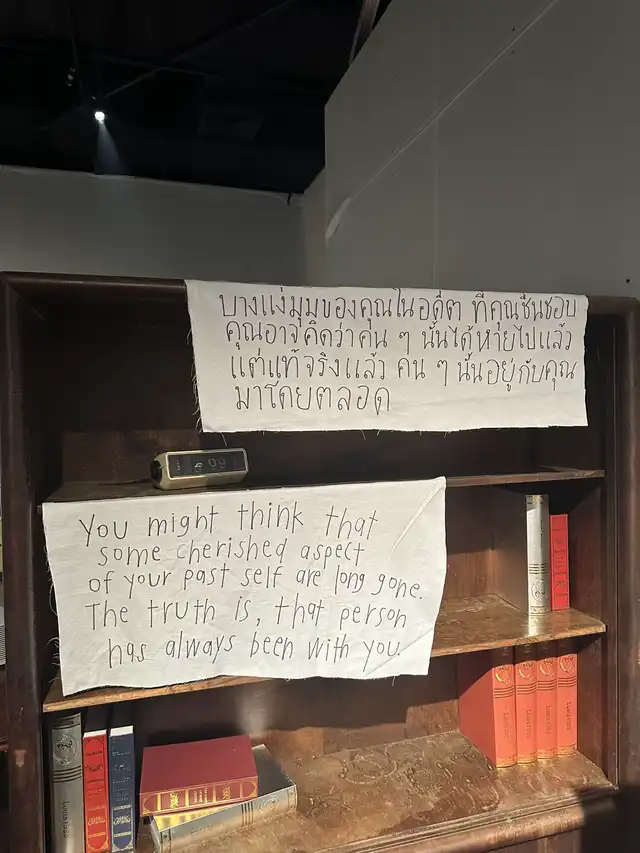 บางแง่มุมของคุณในอดีต ที่คุณชื่นชอบ
คุณอาจคิดว่าคน ๆ นั้นได้หายไปแล้ว
แต่แท้จริงแล้ว คน ๆ นั้นอยู่กับคุณ
มาโดยตลอด
You might think that
some cherished aspect
of your past self are long gone.
The truth is, that person
has always been with you.